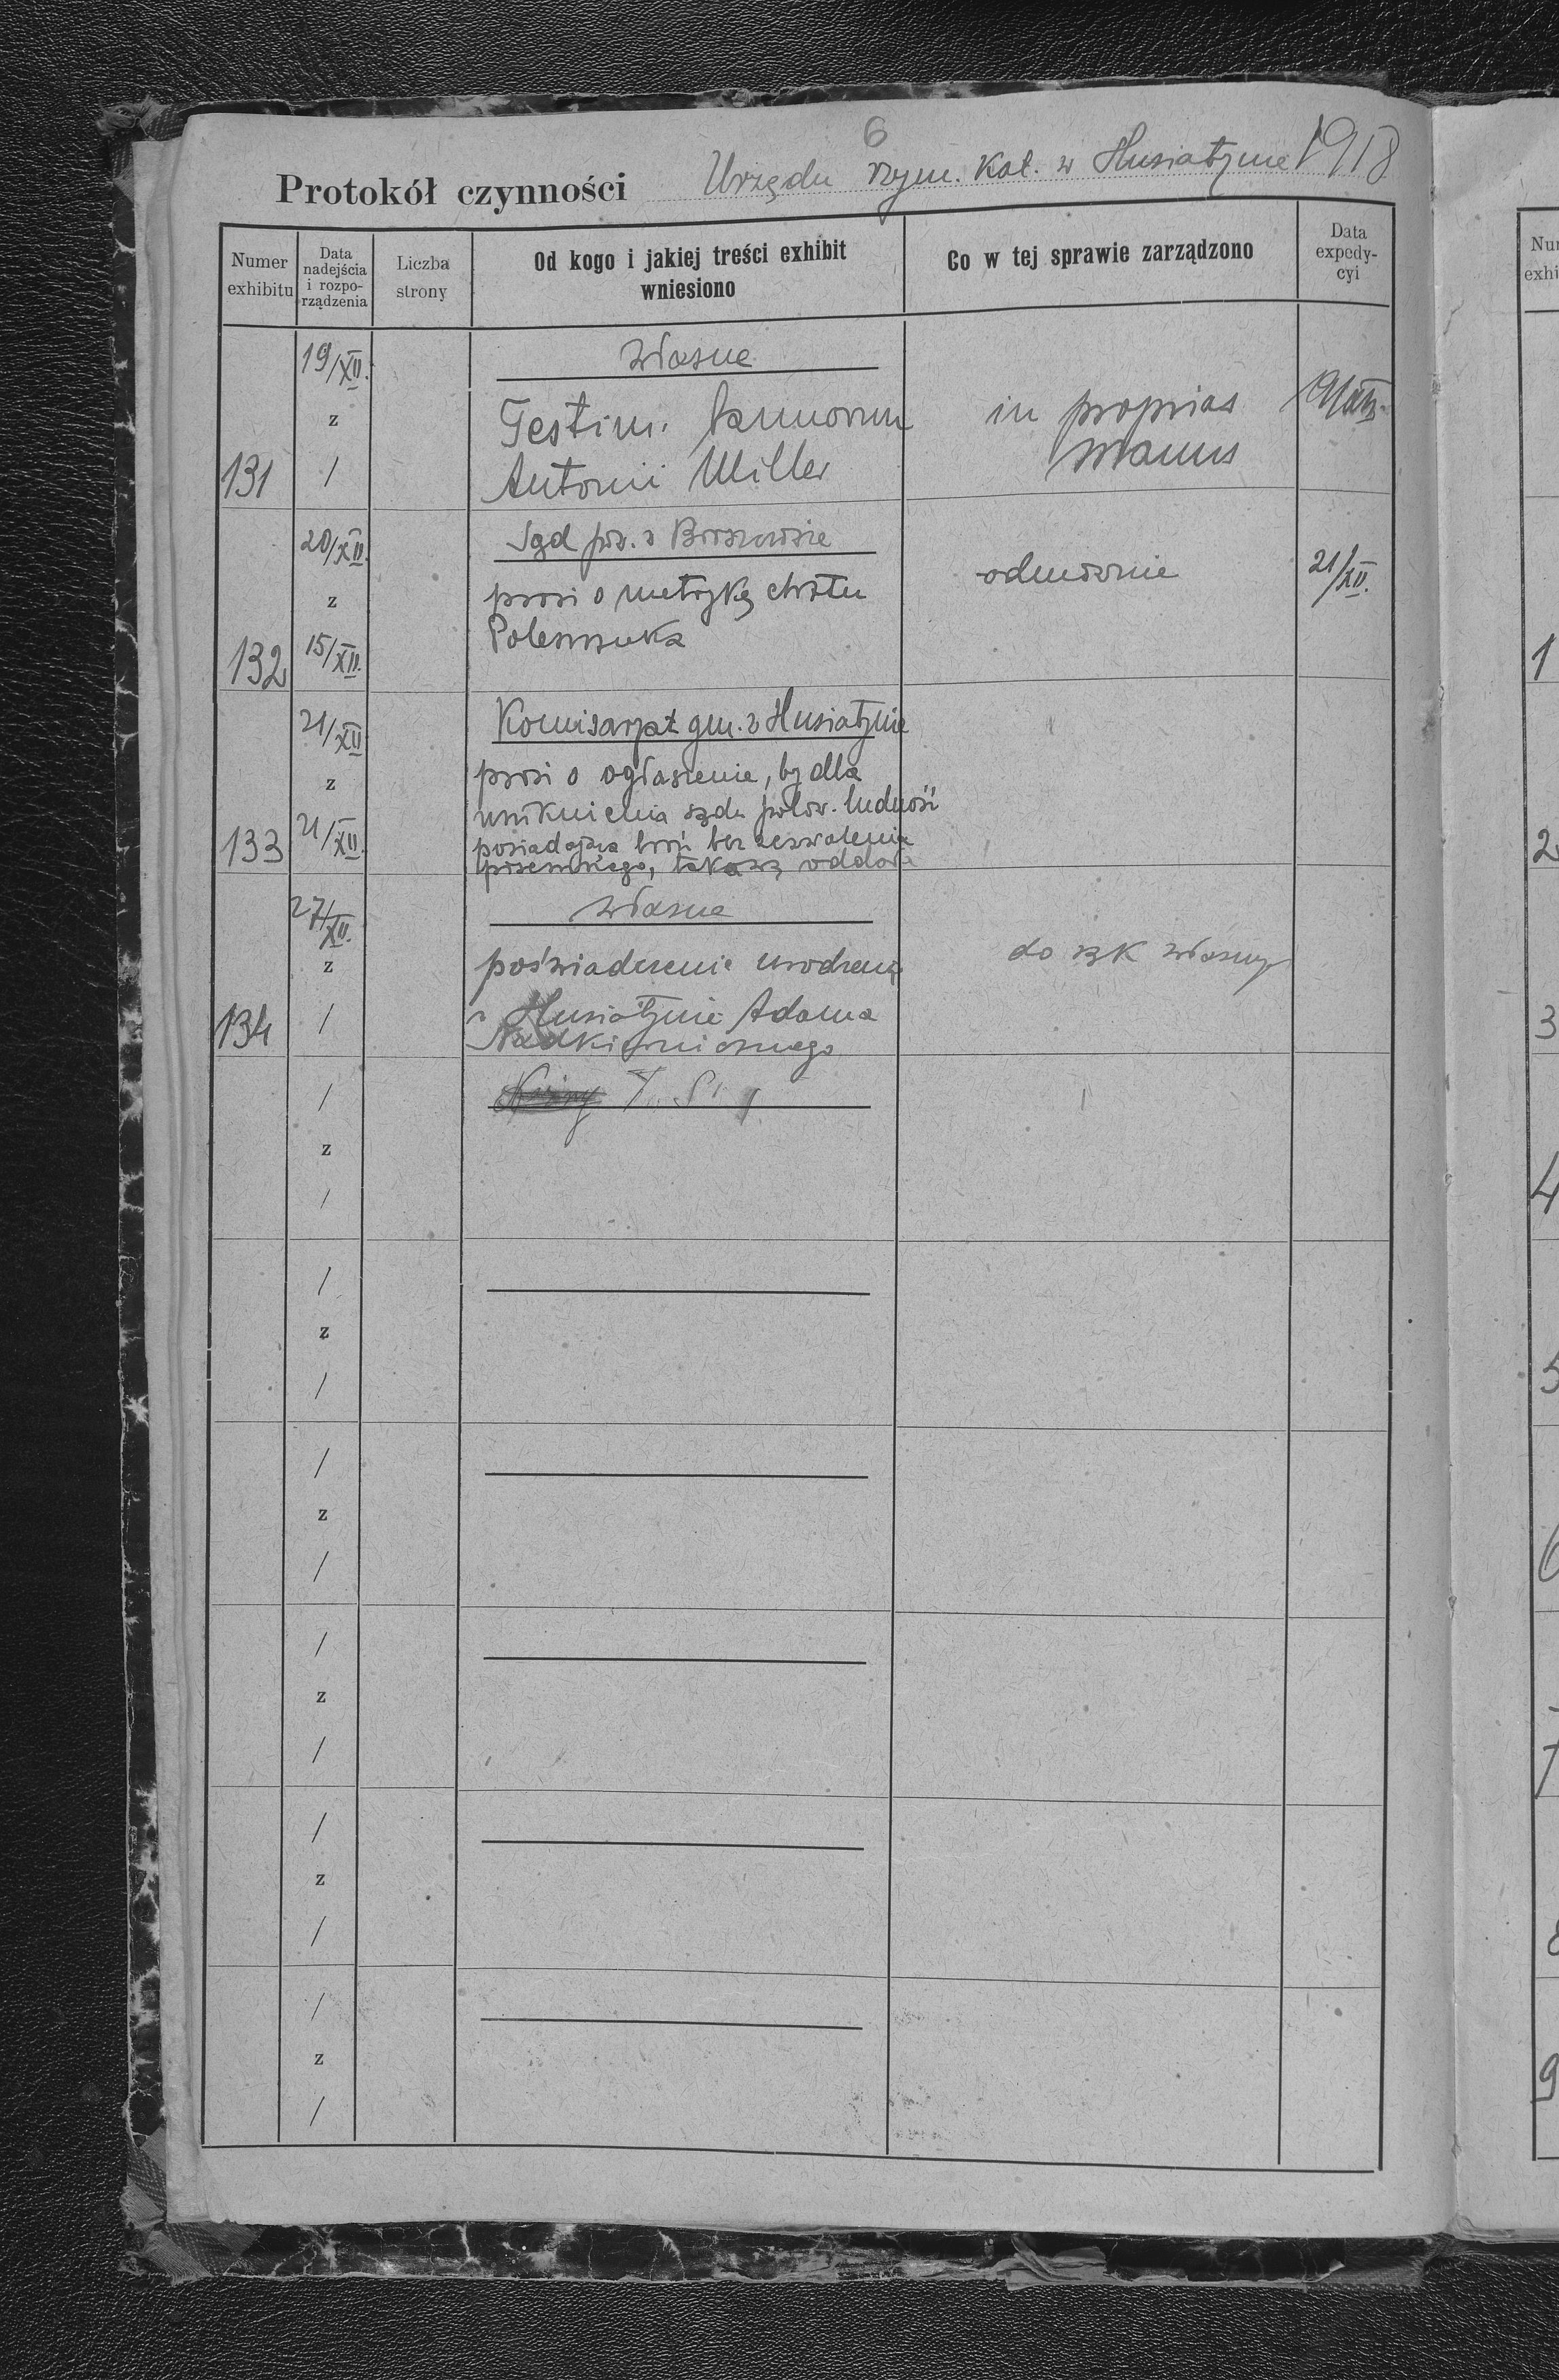 6
Protokół czynności Urzędu rzym. kat. w Husiatynie 1918
Numer exhibitu
Data nadejścia i rozporządzenia
Liczba strony
Od kogo i jakiej treści exhibit wniesiono
Co w tej sprawie zarządzono
Data expedycyi
19/XII. własne
z Testim. bannorum in proprias 19/XII.
131 / Antonii Miller manus
20/XII. Sąd pow. w Borszczowie
z prosi o metrykę chrztu odmownie 21/XII.
132 15/XII. Poleszczuka
21/XII Komisaryat gm. w Husiatynie
z prosi o ogłoszenie, by dla
uniknienia sądu polow. ludność
133 21/XII. posiadająca broń bez zezwolenia
pisemnego, takową oddała
27/XII. własne
z poświadczenie urodzenia do rąk własnych
134 / w Husiatynie Adama
Nadkiernicznego
/
z
/
/
z
/
/
z
/
/
z
/
/
z
/
/
z
/
Nu
exhi
1
2
3
4
5
6
7
8
9